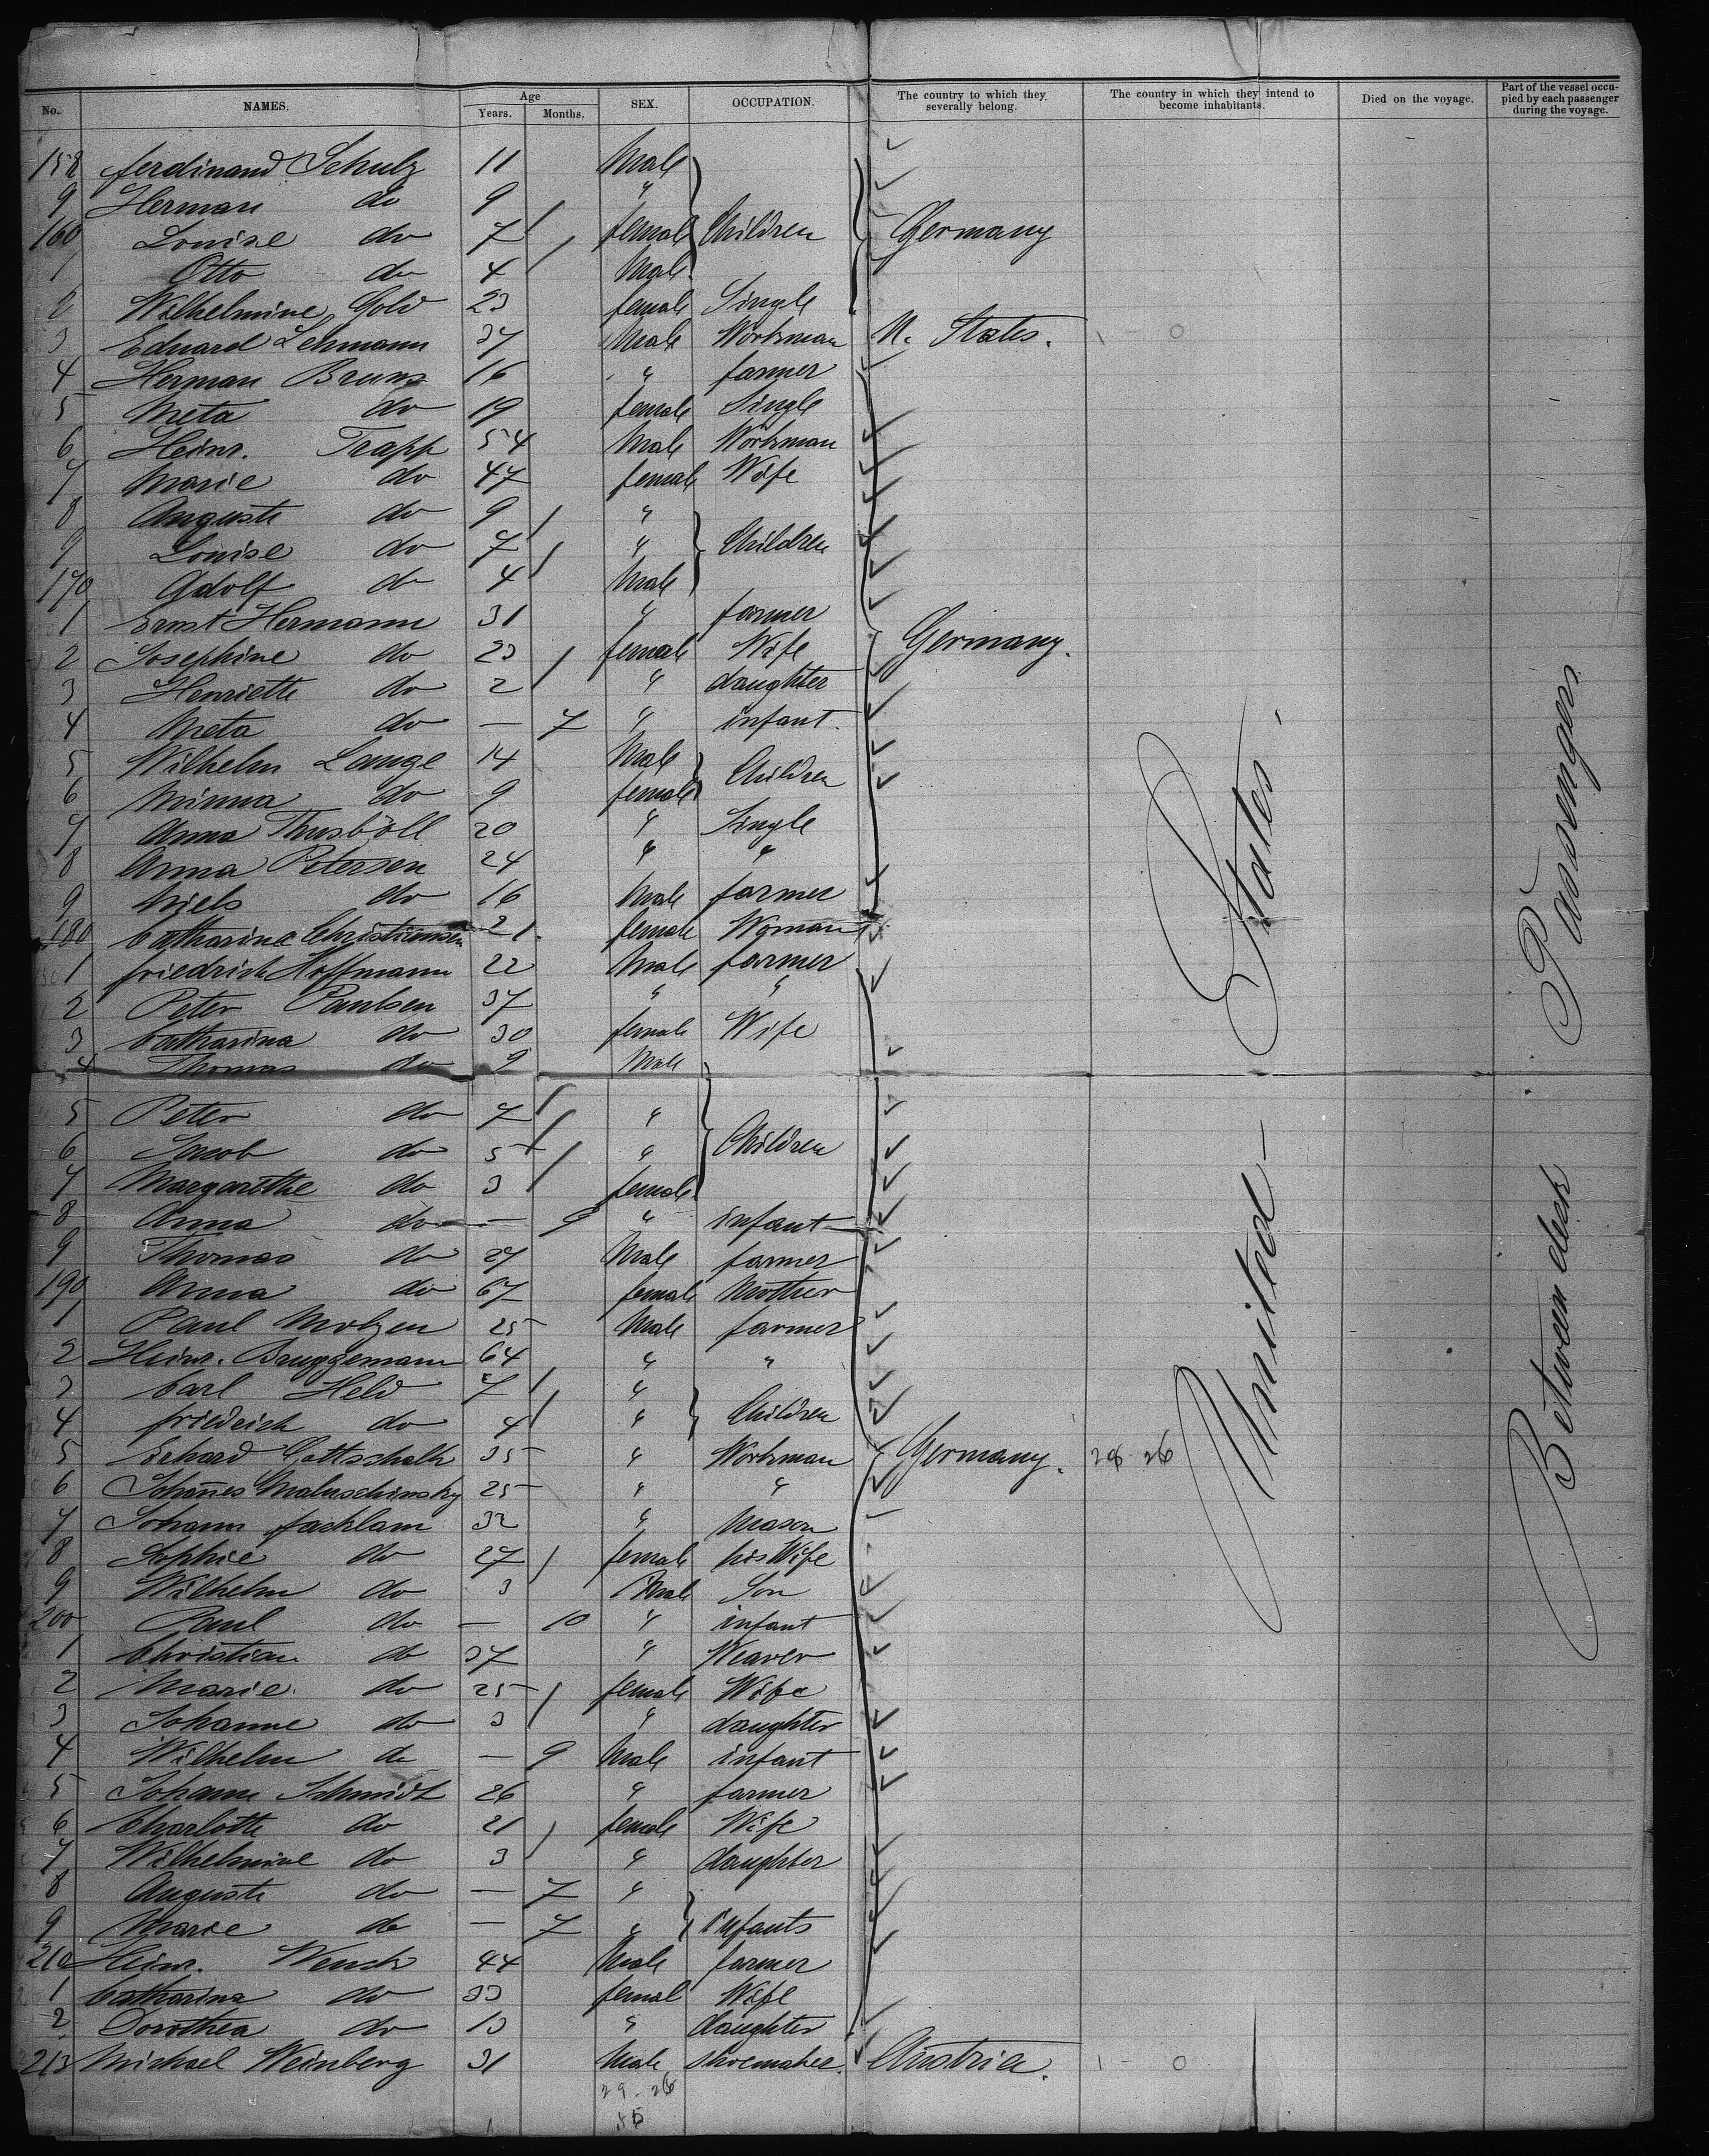 No. NAMES. Age Years. Months. SEX. OCCUPATION. The country to which they severally belong. The country in which they intend to become inhabitants. Died on the voyage. Part of the vessel occupied by each passenger during the voyage.
158 Ferdinand Schulz 11 Male
9 Herman do 9 "
160 Louise do 7 female Children Germany
1 Otto do 4 Male
2 Wilhelmine Gold 23 female Single
3 Eduard Lehmann 37 Male Workman U. States. 1 - 0
4 Herman Bruns 16 " farmer
5 Meta do 19 female Single
6 Heinr. Trapp 54 Male Workman
7 Marie do 47 female Wife
8 Auguste do 9 "
9 Louise do 7 " Children
170 Adolf do 4 Male
1 Ernst Hermann 31 " farmer
2 Josephine do 23 female Wife Germany.
3 Henriette do 2 " daughter
4 Meta do — 7 " infant.
5 Wilhelm Lange 14 Male Children
6 Minna do 9 female
7 Anna Thusböll 20 " Single
8 Anna Petersen 24 " "
9 Niels do 16 Male farmer
180 Catharina Christiansen 21. female Woman
1 Friedrich Hoffmann 22 Male farmer
2 Peter Paulsen 37 " "
3 Catharina do 30 female Wife
4 Thomas do 9 Male
5 Peter do 7 "
6 Jacob do 5 " Children
7 Margarethe do 3 female
8 Anna do — 9 " infant
9 Thomas do 27 Male farmer
190 Anna do 67 female Mother
1 Paul Motzen 25 Male farmer
2 Heinr. Bruggemann 64 " "
3 Carl Held 7 "
4 Friedrich do 4 " Children
5 Erhard Gottschalk 35 " Workman Germany. 28 26
6 Johannes Maluschinsky 25 " "
7 Johann Fachlam 32 " Mason
8 Sophie do 27 female his Wife
9 Wilhelm do 3 Male Son
200 Paul do — 10 " infant
1 Christian do 37 " Weaver
2 Marie do 25 female Wife
3 Johanne do 3 " daughter
4 Wilhelm do — 9 Male infant
5 Johann Schmidt 26 " farmer
6 Charlotte do 21 female Wife
7 Wilhelmine do 3 " daughter
8 Auguste do — 7 "
9 Marie do — 7 " infants
210 Heinr. Wensk 44 Male farmer
1 Catharina do 33 femal Wife
2 Dorothea do 13 " daughter
213 Michael Weinberg 31 Male Shoemaker. Austria. 1 - 0
29-26
United States
Between deck Passengers